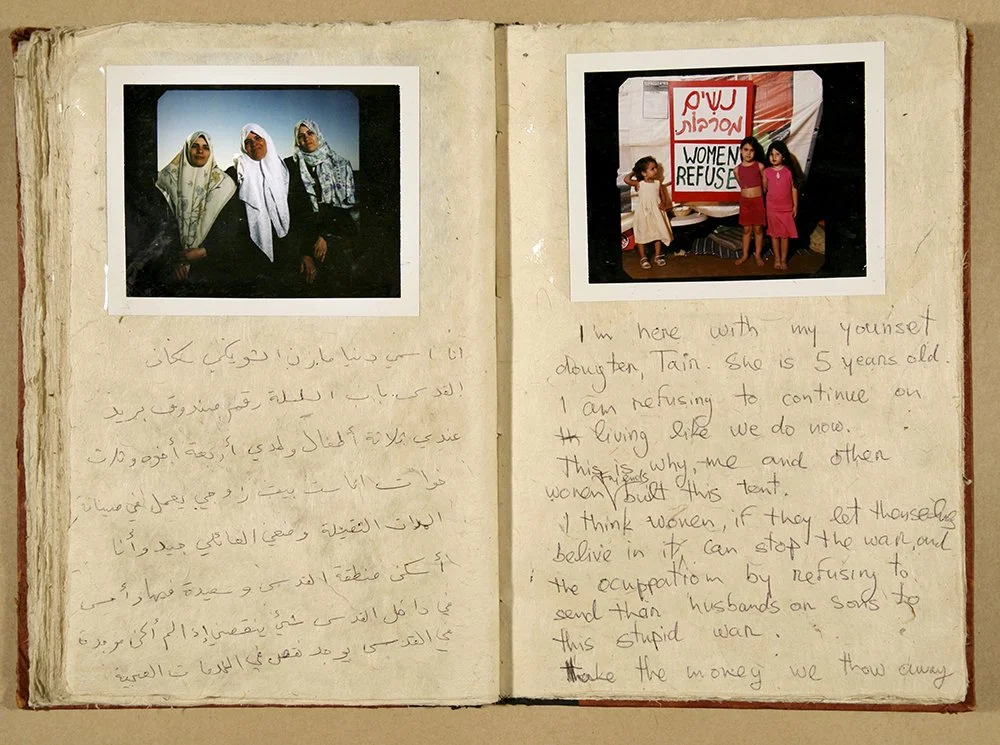 انا اسمي الشويكي سكان
القدس. باب السلسلة رقم صندوق بريد
عندي ثلاثة أطفال ولدي أربعة أخوه وثلاث
خوات انا ست بيت زوجي يعمل في صيانة
الثقيلة وضعي العائلي جيد وأنا
أسكن منطقة القدس وسعيدة
في داخل القدس شئ ينقصني إذا لم أكن موجودة
في القدس يوجد نقص في الخدمات الصحية
נשים
מסרבות.
WOMEN
REFUSE
I'm here with my younset
dougter, Tair. She is 5 years old.
I am refusing to continue on
living like we do now.
This is why, me and other
women friends built this tent.
I think women, if they let themselves
belive in it, can stop the war, and
the ocuppatiom by refusing to
send their husbands or sons to
this stupid war.
take the money we thow away